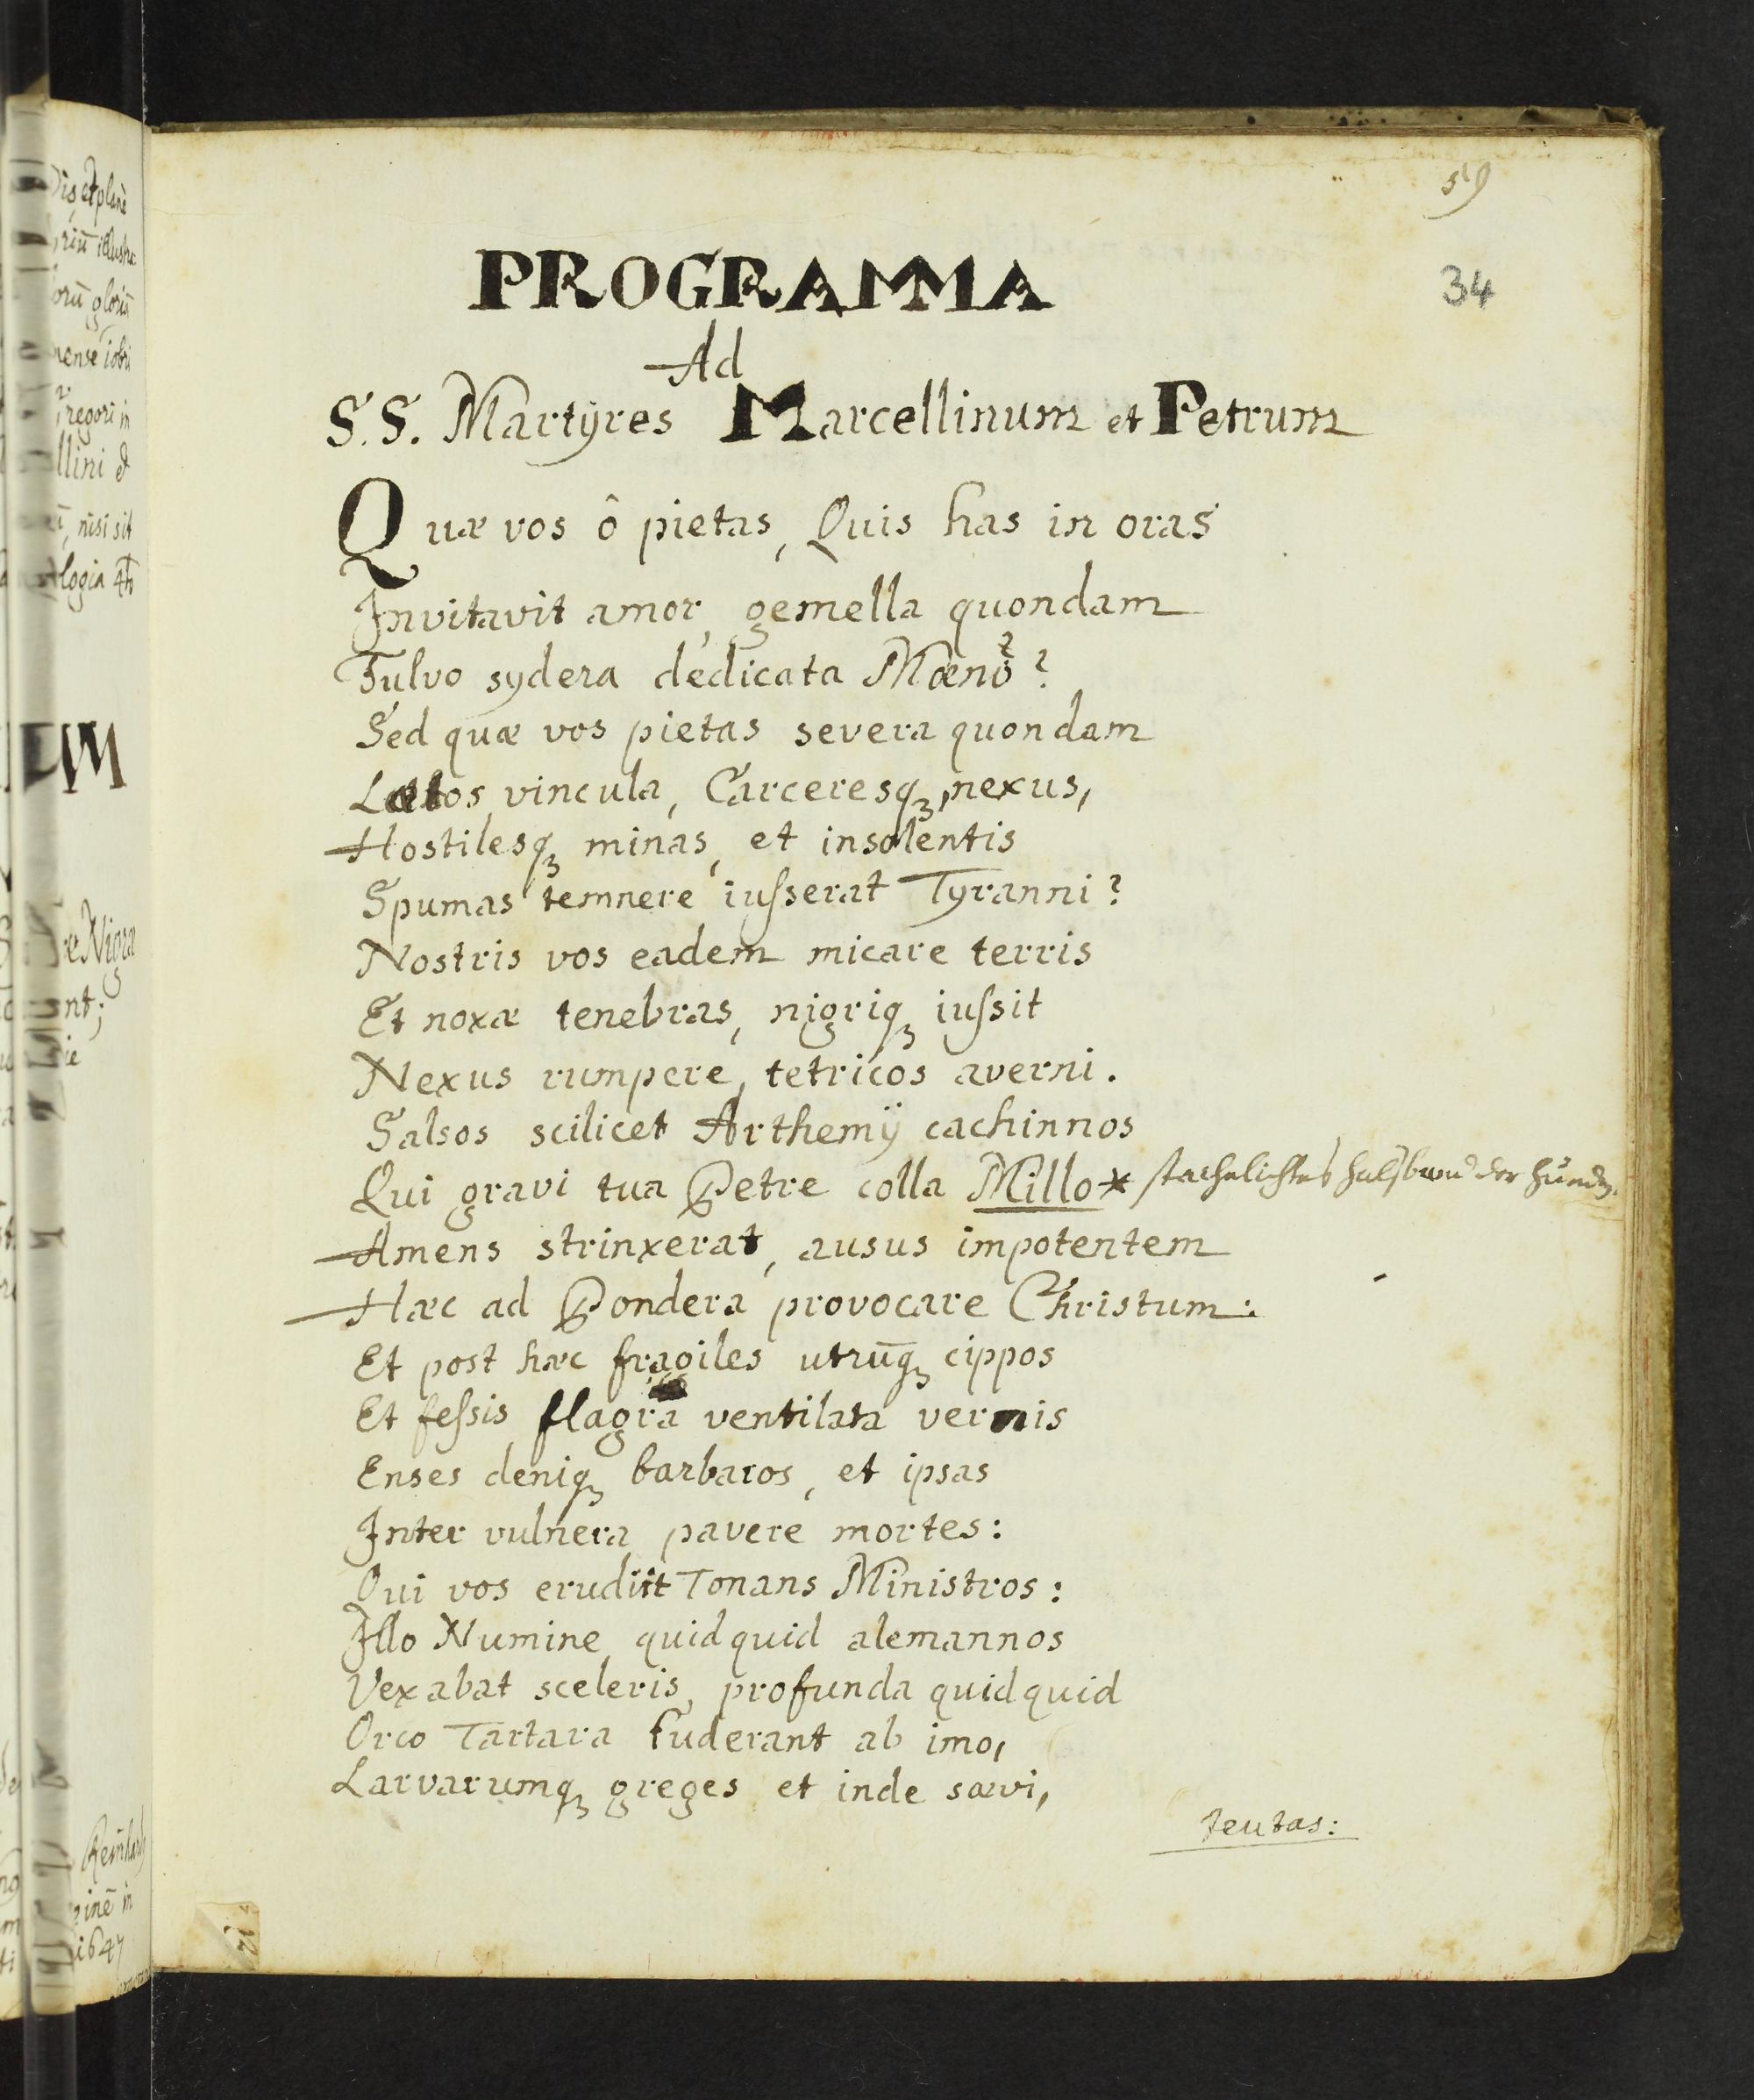 59
34
PROGRAMMA
Ad
S.S. Martÿres Marcellinum et Petrum
Quæ vos ô pietas, Quis has in oras
Invitavit amor, gemella quondam
Fulvo sydera dedicata Mœno?
Sed quæ vos pietas severa quondam
Lætos, vincula, Carceresqꝫ, nexus,
Hostilesqꝫ minas, et insolentis
Spumas temnere iuſserat Tyranni?
Nostris vos eadem micare terris
Et noxæ tenebras, nigriqꝫ iuſsit
Nexus rumpere, tetricos averni.
Salsos scilicet Arthemÿ cachinnos
Qui gravi tua Petre colla Millo * stachelichtes halsband der hünden.
Amens strinxerat, ausus impotentem
Hæc ad Pondera provocare Christum:
Et post hæc fragiles utrūqꝫ cippos
Et feſsis flagra ventilata vernis
Enses deniqꝫ barbaros, et ipsas
Inter vulnera pavere mortes:
Qui vos erudiit Tonans Ministros:
Illo Numine, quidquid alemannos
Vexabat sceleris, profunda quidquid
Orco Tartara fuderant ab imo,
Larvarumqꝫ greges et inde sævi,
teutas: